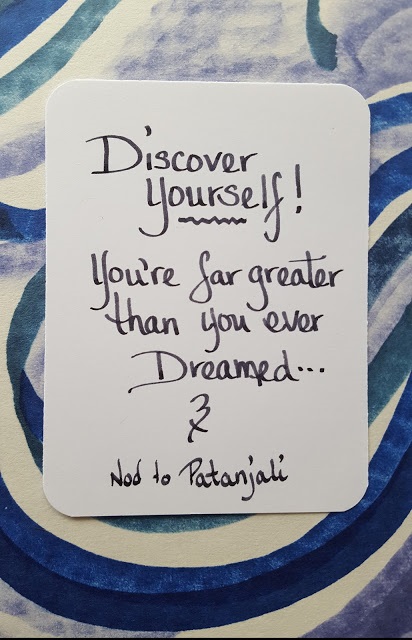 Discover
Yourself!
You're far greater
than you ever
Dreamed...
Nod to Patanjali